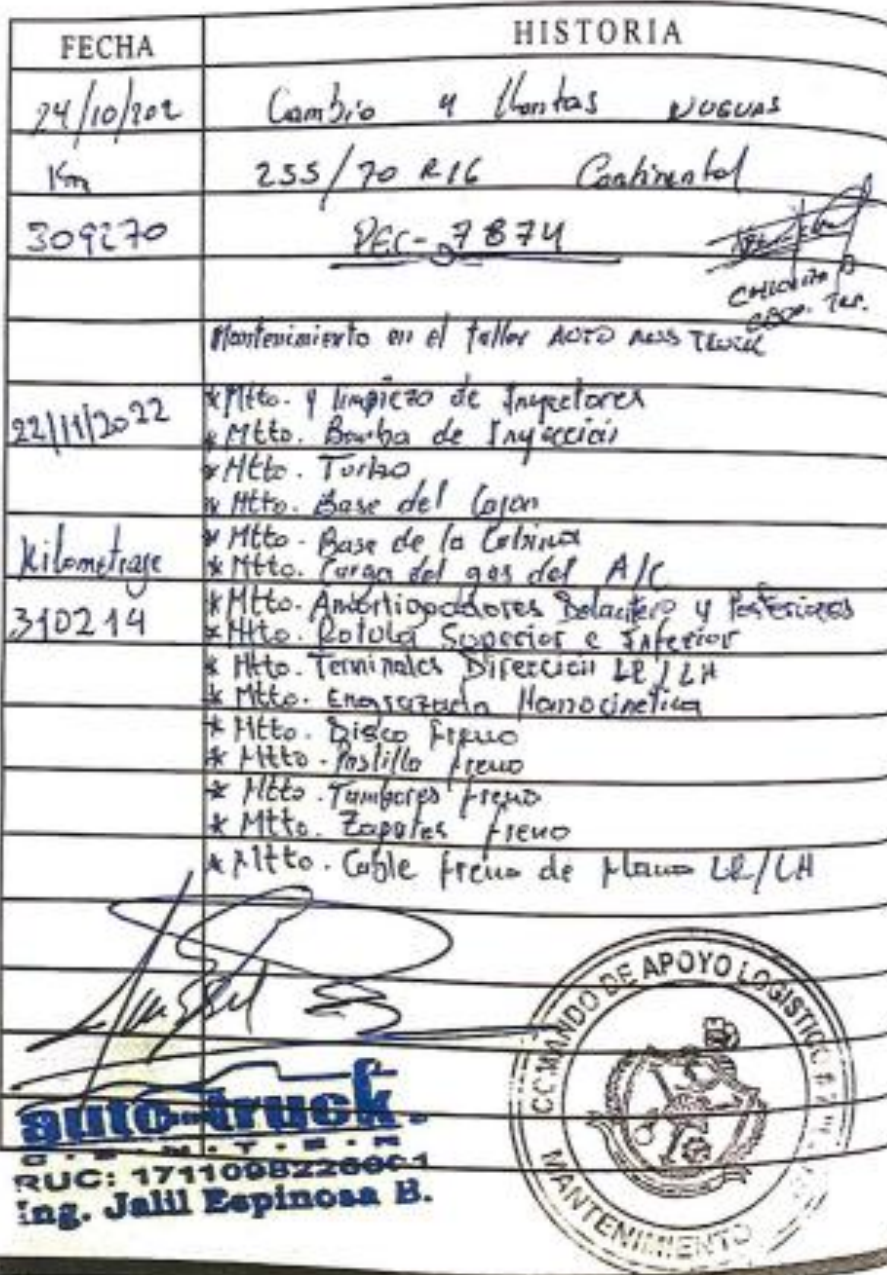 FECHA HISTORIA
24/10/202 Cambio 4 llantas nuevas
Km 255/70 R16 Continental
309270 PEC-7874
Mantenimiento en el taller AUTO
22/11/2022 * Mtto. y limpieza de Inyectores
* Mtto. Bomba de Inyección
* Mtto. Turbo
* Mtto. Base del Cajon
Kilometraje * Mtto. Base de la Cabina
* Mtto. Carga del gas del A/C
310214 * Mtto. Amortiguadores Delantero y Posteriores
* Mtto. Rotula Superior e Inferior
* Mtto. Terminales Dirección LR/LH
* Mtto. Engrasada Homocinetica
* Mtto. Disco freno
* Mtto. Pastilla freno
* Mtto. Tambores freno
* Mtto. Zapatas freno
* Mtto. Cable freno de Mano LR/LH
auto-truck
C·E·N·T·E·R
RUC: 1711098226001
Ing. Jalil Espinosa B.
COMANDO DE APOYO LOGISTICO
MANTENIMIENTO